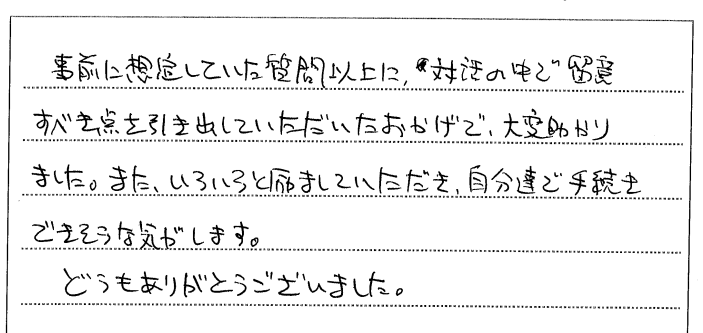 事前に想定していた質問以上に、対話の中で留意
すべき点を引き出していただいたおかげで、大変助かり
ました。また、いろいろと励ましていただき、自分達で手続き
できそうな気がします。
どうもありがとうございました。